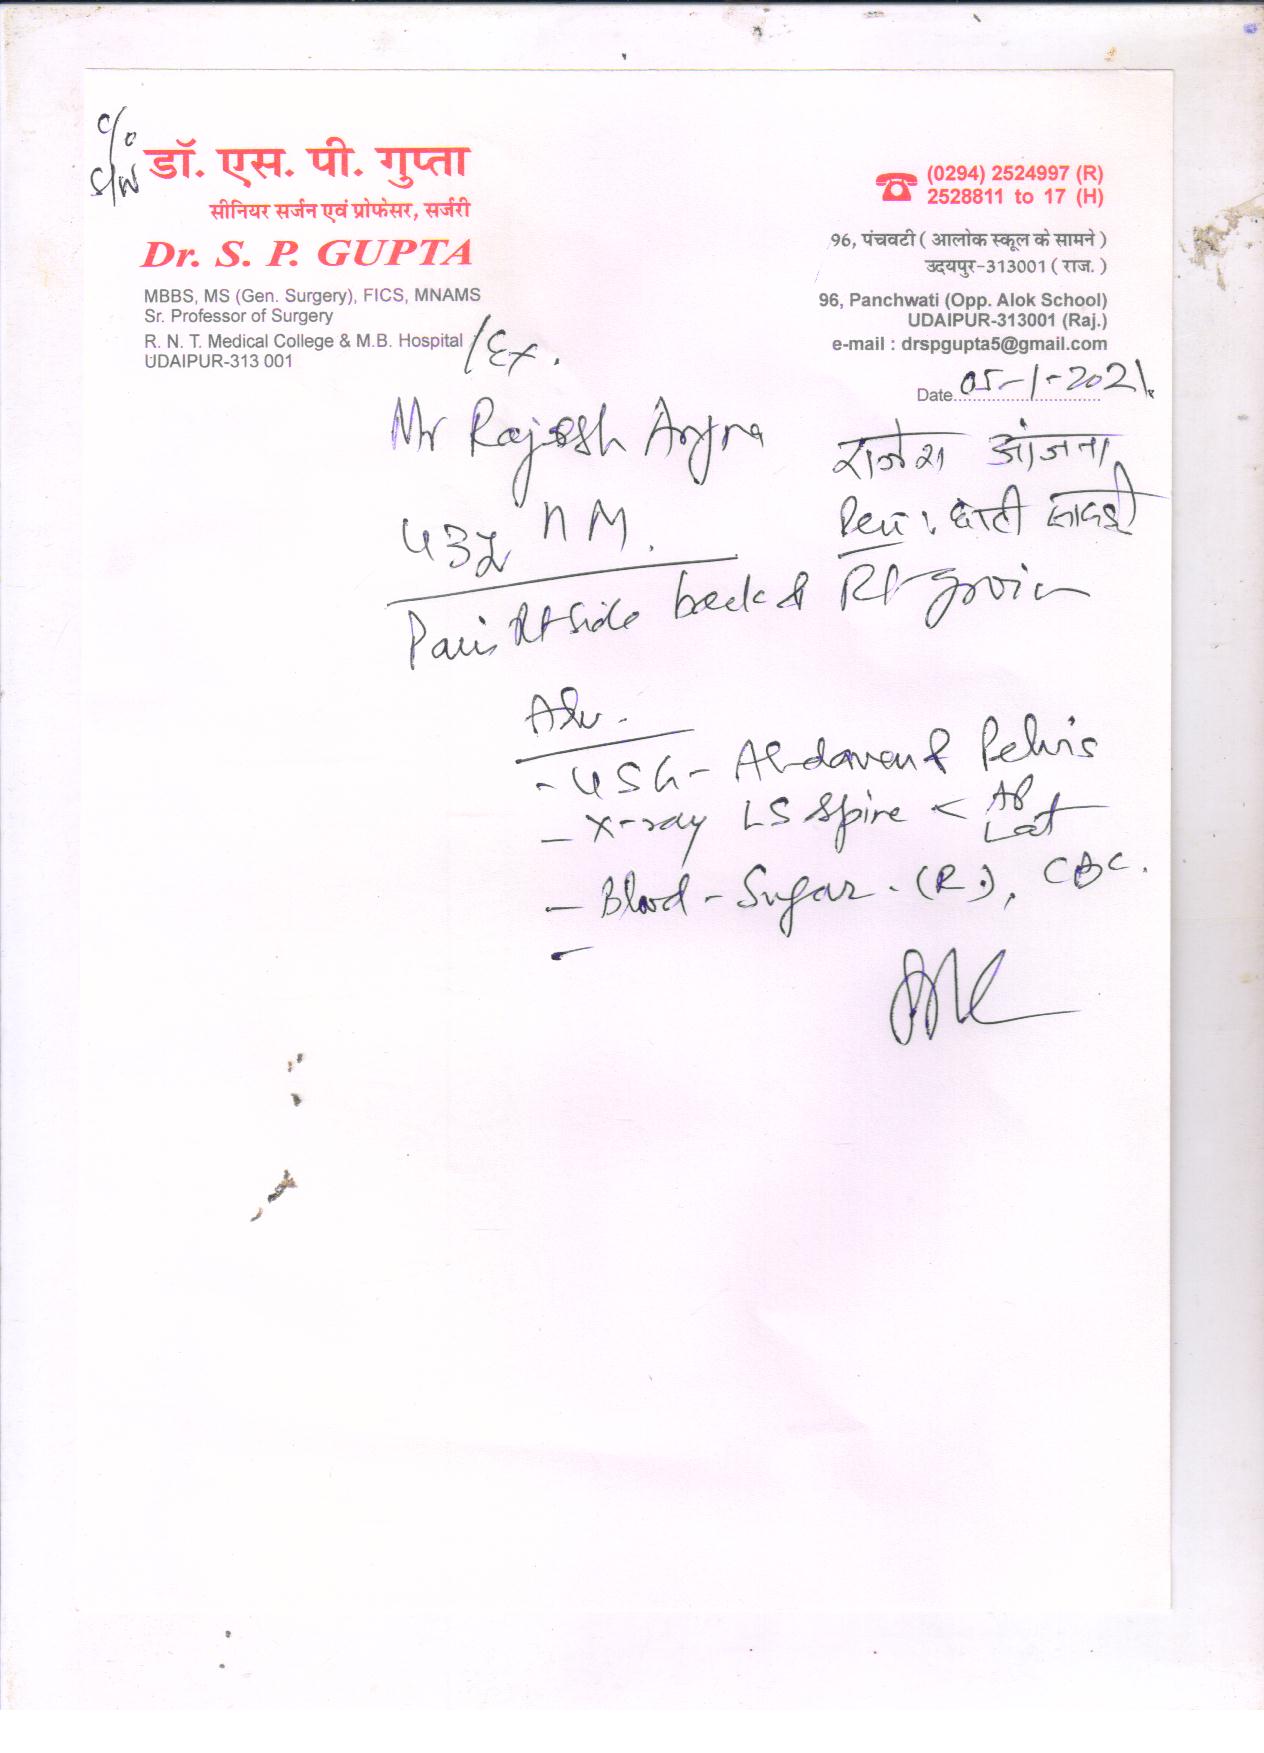 C/o
S/W
डॉ. एस. पी. गुप्ता
सीनियर सर्जन एवं प्रोफेसर, सर्जरी
Dr. S. P. GUPTA
MBBS, MS (Gen. Surgery), FICS, MNAMS
Sr. Professor of Surgery
R. N. T. Medical College & M.B. Hospital /Ex.
UDAIPUR-313 001
(0294) 2524997 (R)
2528811 to 17 (H)
96, पंचवटी ( आलोक स्कूल के सामने )
उदयपुर-313001 ( राज. )
96, Panchwati (Opp. Alok School)
UDAIPUR-313001 (Raj.)
e-mail : drspgupta5@gmail.com
Date 05-1-2021.
Mr Rajesh Anjna
राजेश आंजना
M.
Pain Rt side back & Rt groin
Adv.
- USG - Abdomen & Pelvis
- X-ray LS Spine < AP
Lat
- Blood - Sugar. (R.), CBC.
-